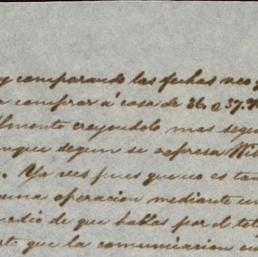 y comparando las fechas veo
comprar á casa de 36 a 37.
lmente creyendolo mas segu
nque segun se espresa
. Ya ves pues que no es tan
una operacion mediante un
medio de que hablas por el tel
rto que la comunicacion